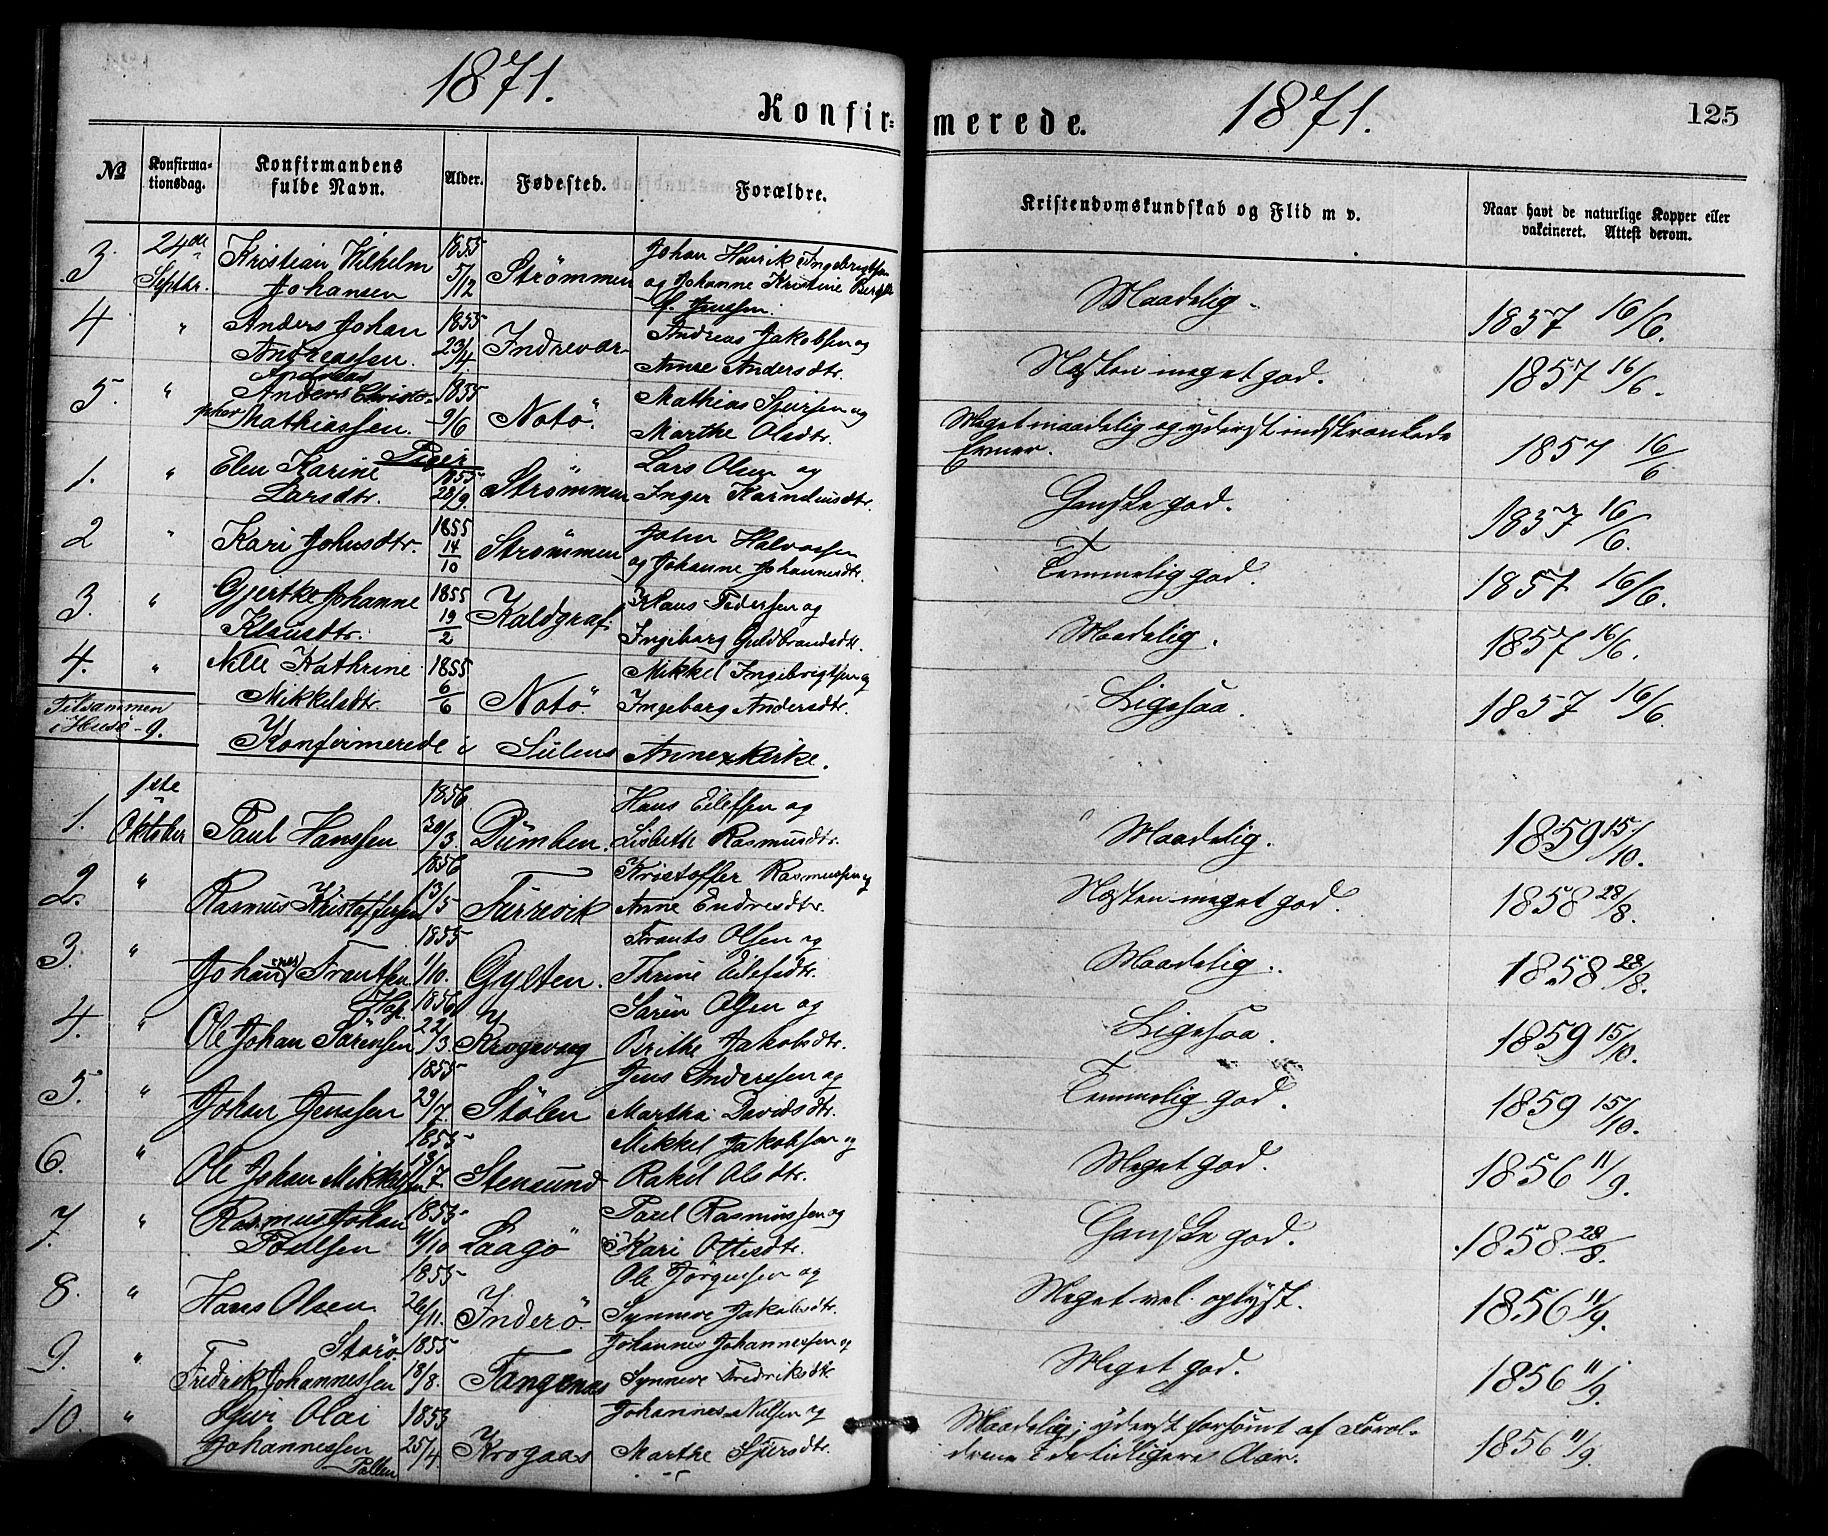 1871.
Konfir-
merede.
1871.
125
№
Konfirma-
tionsdag.
Konfirmandens
fulde Navn.
Alder.
Fødested.
Forældre.
Kristendomskundskab og Flid m v.
Naar havt de naturlige Kopper eller
vakcineret. Attest derom.
3. 24de Septbr. Kristian Vilhelm Johansen 1855 5/12 Strömmen Johan Henrik Ingebrigtsen og Johanne Kristine Jenssen. Maadelig. 1857 16/6.
4 " Anders Johan Andreassen. 1855 23/4 Indrevær Andreas Jakobsen og Anne Andersdtr. Næsten meget god. 1857 16/6.
5. " Andreas Christopher Mathiassen. 1855 9/6 Notö. Mathias Sjursen og Marthe Olsdtr. Meget maadelig og yderst indskrænkede Evner. 1857 16/6
Piger
1. " Elen Karine Larsdtr. 1855 28/9. Strömmen Lars Olsen og Inger Karndusdtr. Ganske god. 1857 16/6.
2 " Kari Johnsdtr. 1855 14/10 Strömmen John Halvorsen og Johanne Johannesdtr. Temmelig god. 1857 16/6.
3. " Gjertke Johanne Klausdtr. 1855 19/2 Kaldgraf. Klaus Pedersen og Ingeborg Guldbrandsdtr. Maadelig. 1857 16/6.
4. " Nille Kathrine Mikkelsdtr. 1855 6/6 Notö. Mikkel Ingebrigtsen og Ingeborg Andersdtr. Ligesaa. 1857 16/6.
Tilsammen
i Husö - 9.
Konfirmerede i Sulens Annexkirke.
1. 1ste Oktober Paul Hanssen 1856 30/3 Dumben. Hans Eilefsen og Lisbeth Rasmusdtr. Maadelig. 1859 15/10.
2. " Rasmus Kristoffersen 1856 13/5 Furrevik Kristoffer Rasmussen og Anne Endresdtr. Næsten meget god. 1858 28/8.
3. " Johannes Frantsen 1855 1/10. Gylten. Frants Olsen og Thrine Eilefsdtr. Maadelig. 1858 28/8.
4. " Ole Johan Sörensen 1856 22/3. Krogevaag Sören Olsen og Brithe Jakobsdtr. Ligesaa. 1859 15/10.
5. " Johan Jenssen 1855 29/7. Stölen Jens Anderssen og Martha Davidsdtr. Temmelig god. 1859 15/10.
6. " Ole Johan Mikkelsen 1855 Stensund Mikkel Jakobsen og Rakel Olsdtr. Meget god. 1856 11/9.
7. " Rasmus Johan Poulsen 1855 11/10 Laagö Paul Rasmussen og Kari Ottesdtr. Ganske god. 1858. 28/8.
8. " Hans Olsen 1855 26/11. Inderö. Ole Jörgensen og Synneve Jakobsdtr. Meget vel oplyst. 1856 11/9.
9. " Storö. Fredrik Johannessen 1855 13/8. Tangenæs Johannes Johannessen og Synneve Fredriksdtr. Meget god. 1856 11/9.
10. " Sjur Olai Johannessen Pollen 1853 25/4 Krogaas Johannes Nilsen og Marthe Sjursdtr. Maadelig; yderst forsömt af Foræl-
drene i de tidligere Aar. 1856 11/9.